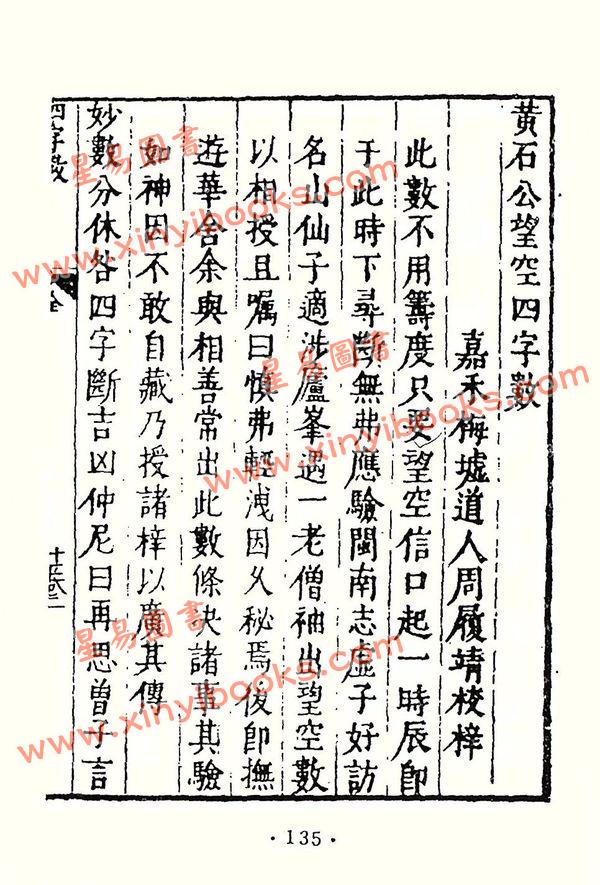 黃石公望空四字數
嘉禾梅墟道人周履靖校梓
此數不用籌度只要望空信口起一時辰即
于此時下尋斷無弗應驗閩南志虛子好訪
名山仙子適涉廬峯遇一老僧袖出望空數
以相授且囑曰慎弗輕洩因久秘焉後即撫
遊華舍余與相善常出此數條決諸事其驗
如神因不敢自藏乃授諸梓以廣其傳
妙數分休咎四字斷吉凶仲尼曰再思曾子言
四字數
全
星易圖書
www.xinyibooks.com
星易圖書
www.xinyibooks.com
星易圖書
www.xinyibooks.com
·135·